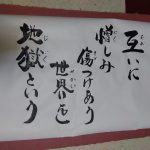 互いに
憎しみ
傷つけあう
世界を
地獄という